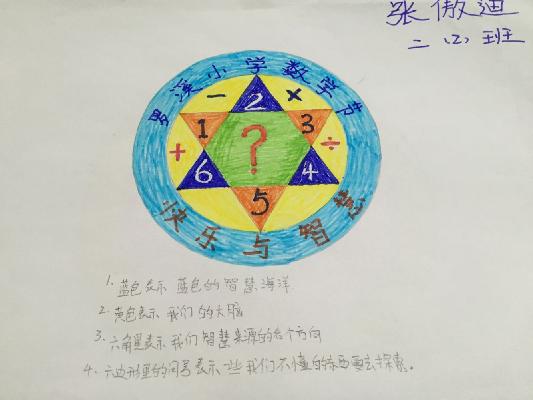 张傲迪
二(2)班
罗溪小学数学节
− ×
2
1 3
+ ? ÷
6 4
5
快乐与智慧
1. 蓝色表示 蓝色的智慧海洋
2. 黄色表示 我们的大脑
3. 六角星表示我们智慧来源的各个方向
4. 六边形里的问号表示一些我们不懂的东西要去探索。